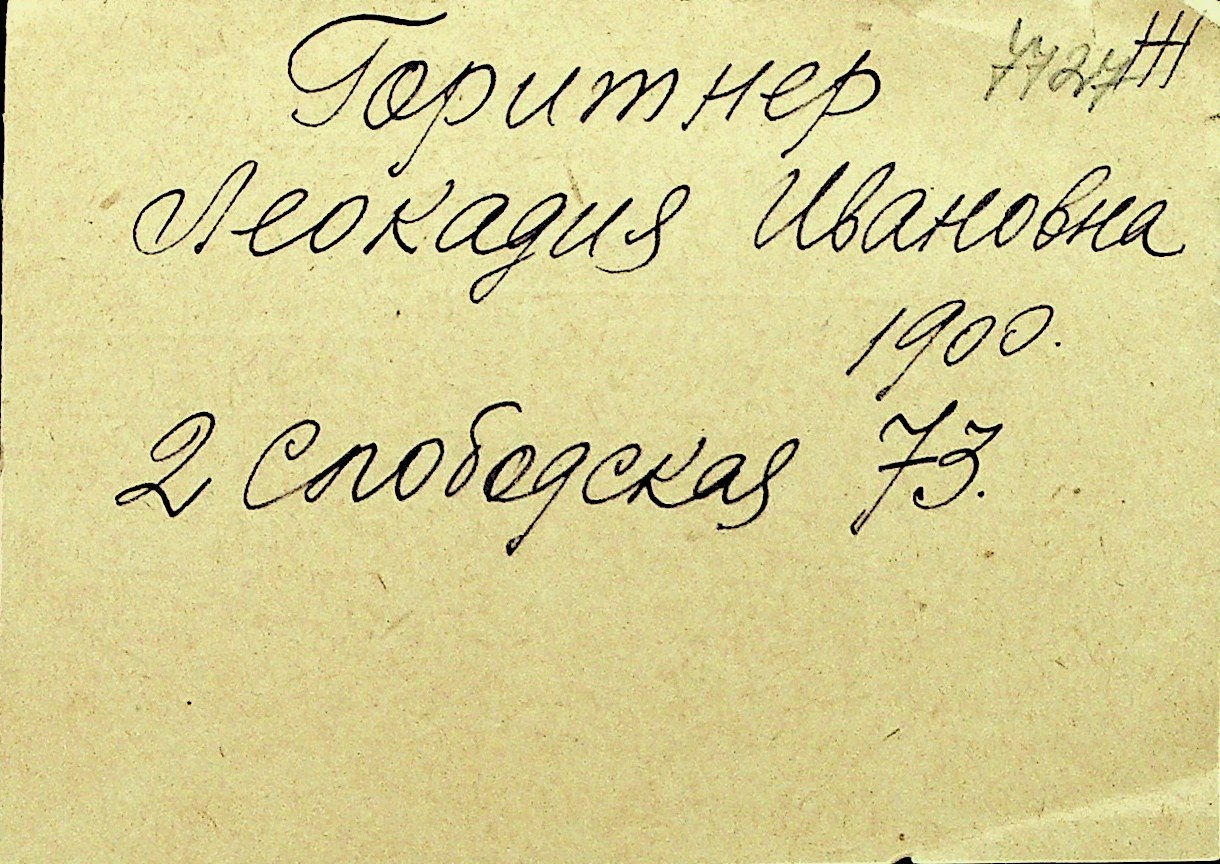 Горитнер 7727 Ж
Леокадия Ивановна
1900.
2 Слободская 73.